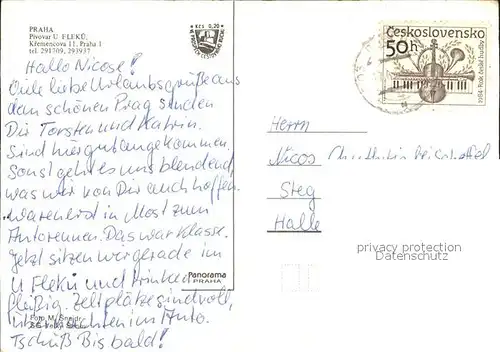 PRAHA
Pivovar U FLEKŮ,
Křemencova 11, Praha 1
tel. 291709, 293937
Kčs 0,20
Československo
50h
1984·Rok české hudby
Hallo Nicose!
Viele liebe Urlaubsgrüße aus
dem schönen Prag senden
Dir Torsten und Katrin.
Sind hier gut angekommen.
Sonst geht es uns blendend,
was wir von Dir auch hoffen.
Waren erst in Most zum
Autorennen. Das war Klasse.
Jetzt sitzen wir gerade im
U Fleků und trinken
fleißig. Zeltplätze sind voll,
im Auto.
Tschüß Bis bald!
Panorama
PRAHA
Foto M. Šnejdr
Herrn
Nicos
Steg
Halle
privacy protection
Datenschutz